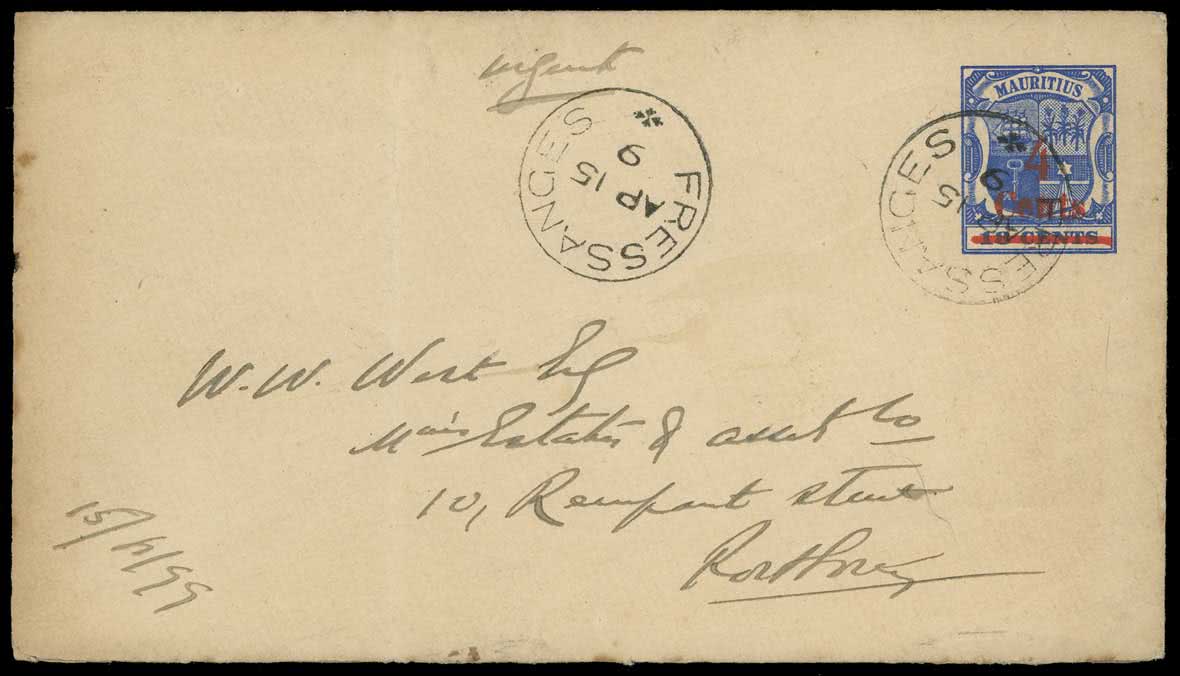 urgent
MAURITIUS
4
Cents
18 CENTS
FRESSANGES
AP 15
9
FRESSANGES
AP 15
9
W. W. West Esq
Mau's Estates & asset Co
10, Rempart street
Port Louis
15/4/99